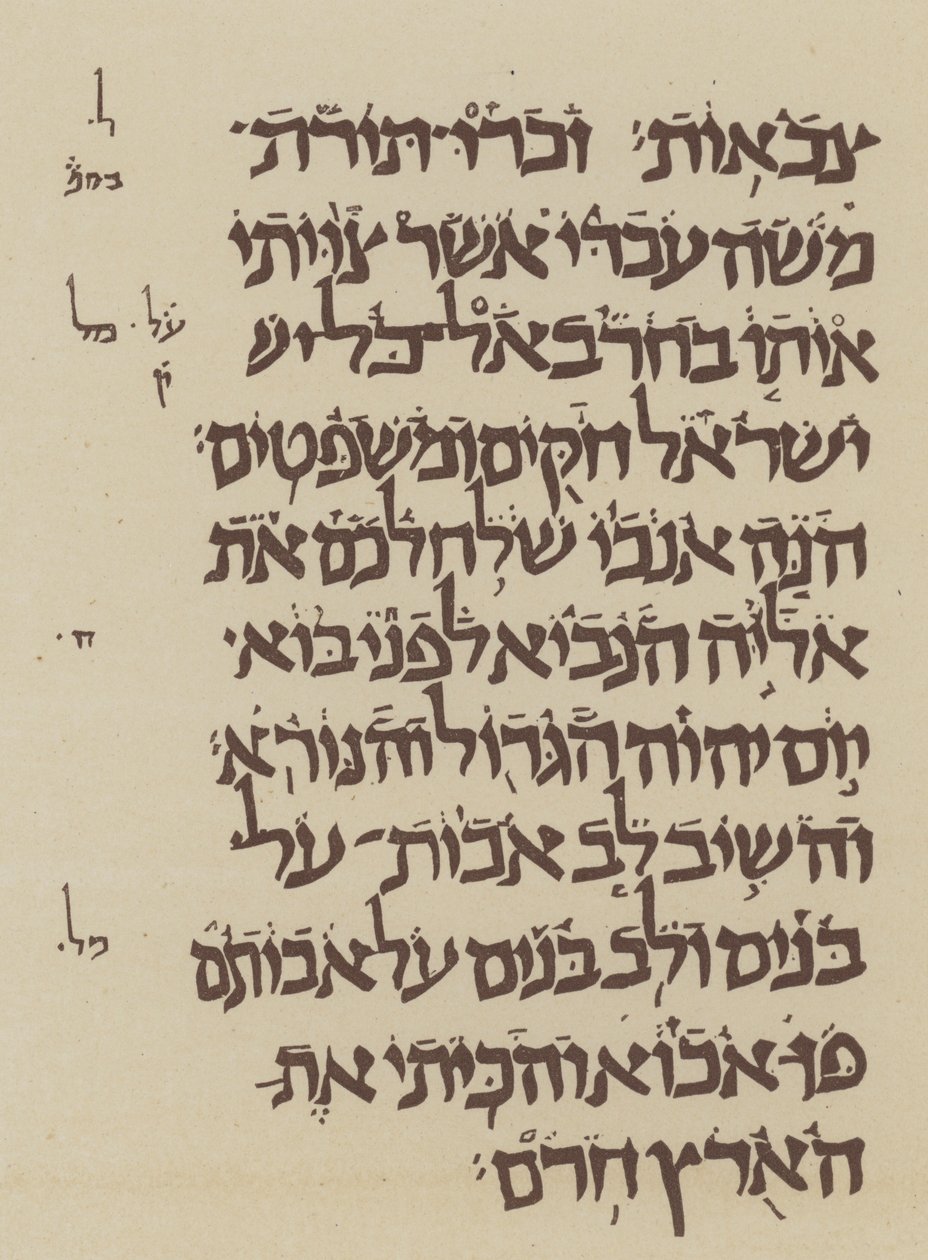 צבאות׃ זכרו תורת
משה עבדי אשר צויתי
אותו בחרב אל כל יש
ישראל חקים ומשפטים׃
הנה אנכי שלח לכם את
אליה הנביא לפני בוא
יום יהוה הגדול והנורא׃
והשיב לב אבות על
בנים ולב בנים על אבותם
פן אבוא והכיתי את
הארץ חרם׃
ל
על מל
ח
מל